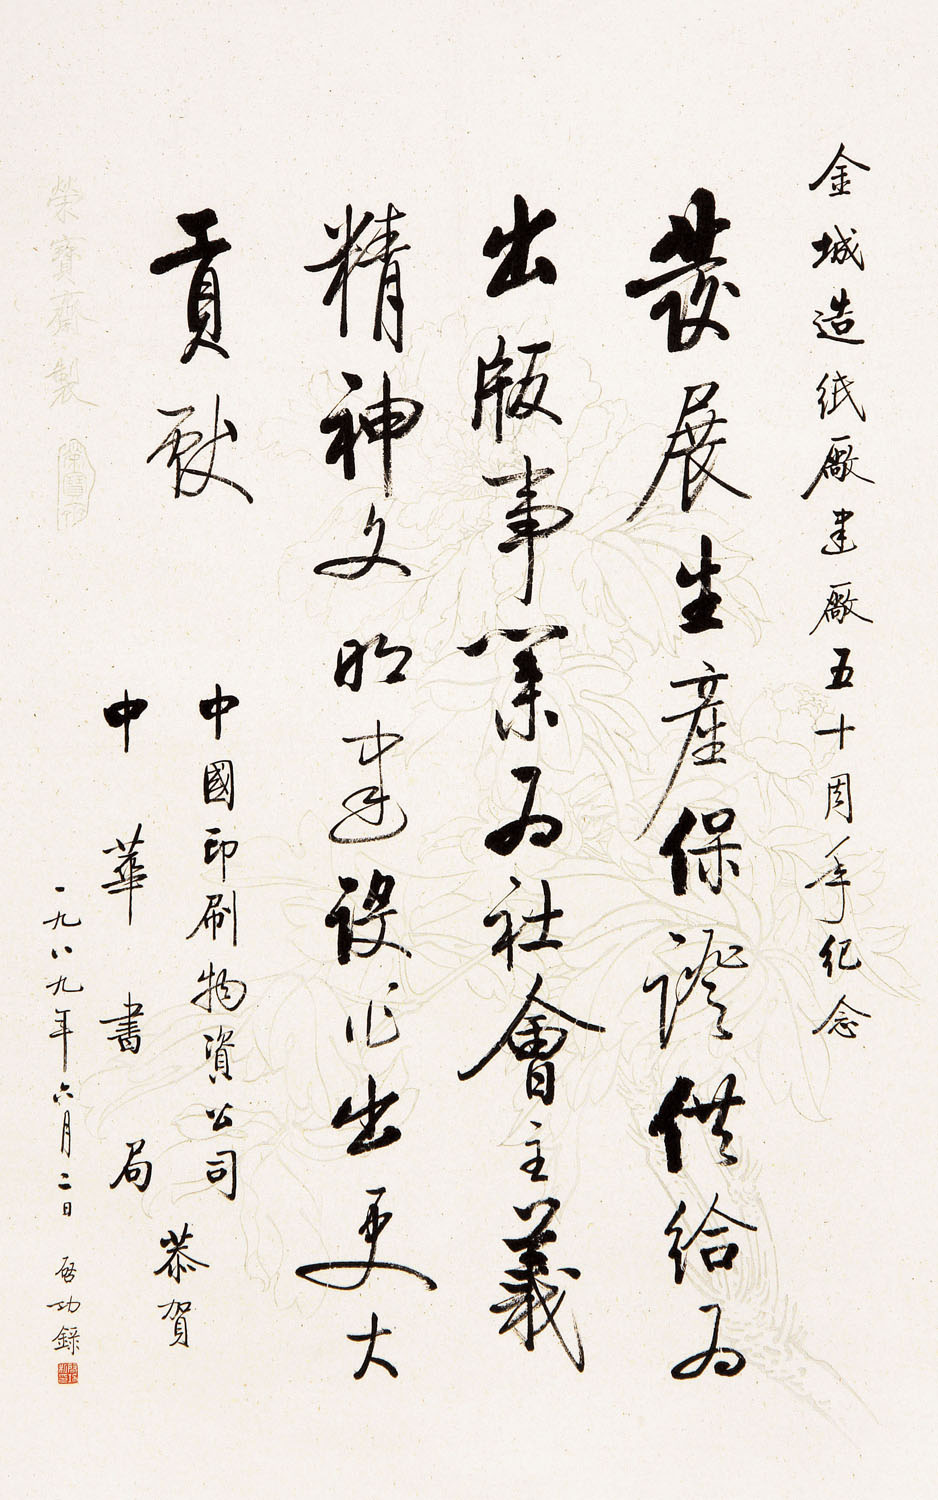 金城造紙廠建廠五十周年纪念
發展生產保證供给為
出版事業為社會主義
精神文明建设作出更大
貢献
中國印刷物資公司
中華書局
恭賀
一九八九年六月二日 启功錄
榮寶齋製